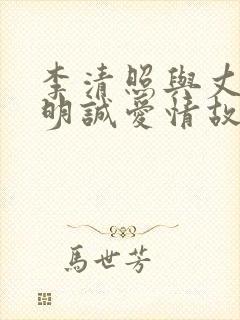 李清照與丈
明誠愛情故
馬世芳